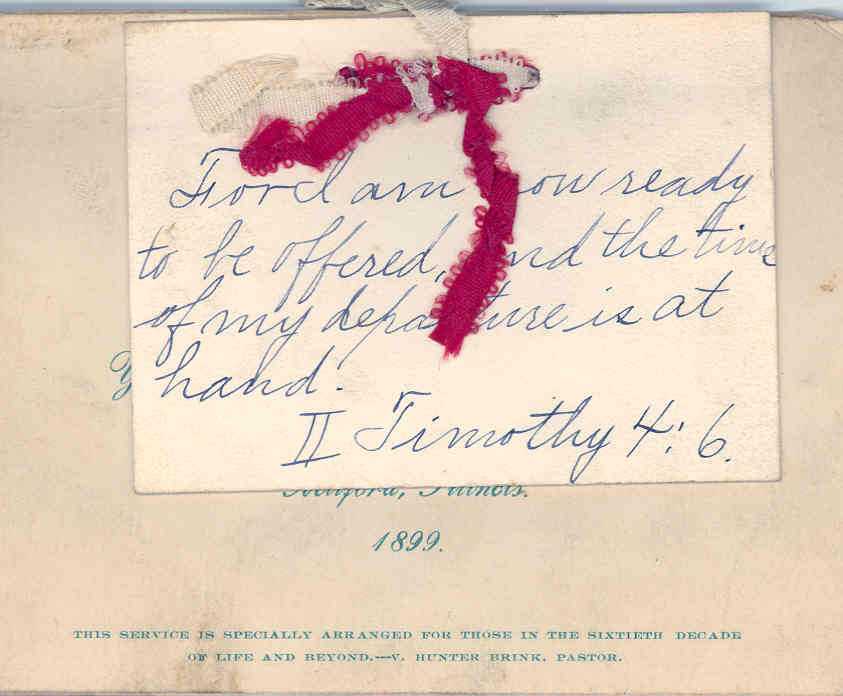 For I am now ready
to be offered, and the time
of my departure is at
hand.
II Timothy 4:6.
Milford, Illinois.
1899.
THIS SERVICE IS SPECIALLY ARRANGED FOR THOSE IN THE SIXTIETH DECADE
OF LIFE AND BEYOND.—V. HUNTER BRINK, PASTOR.